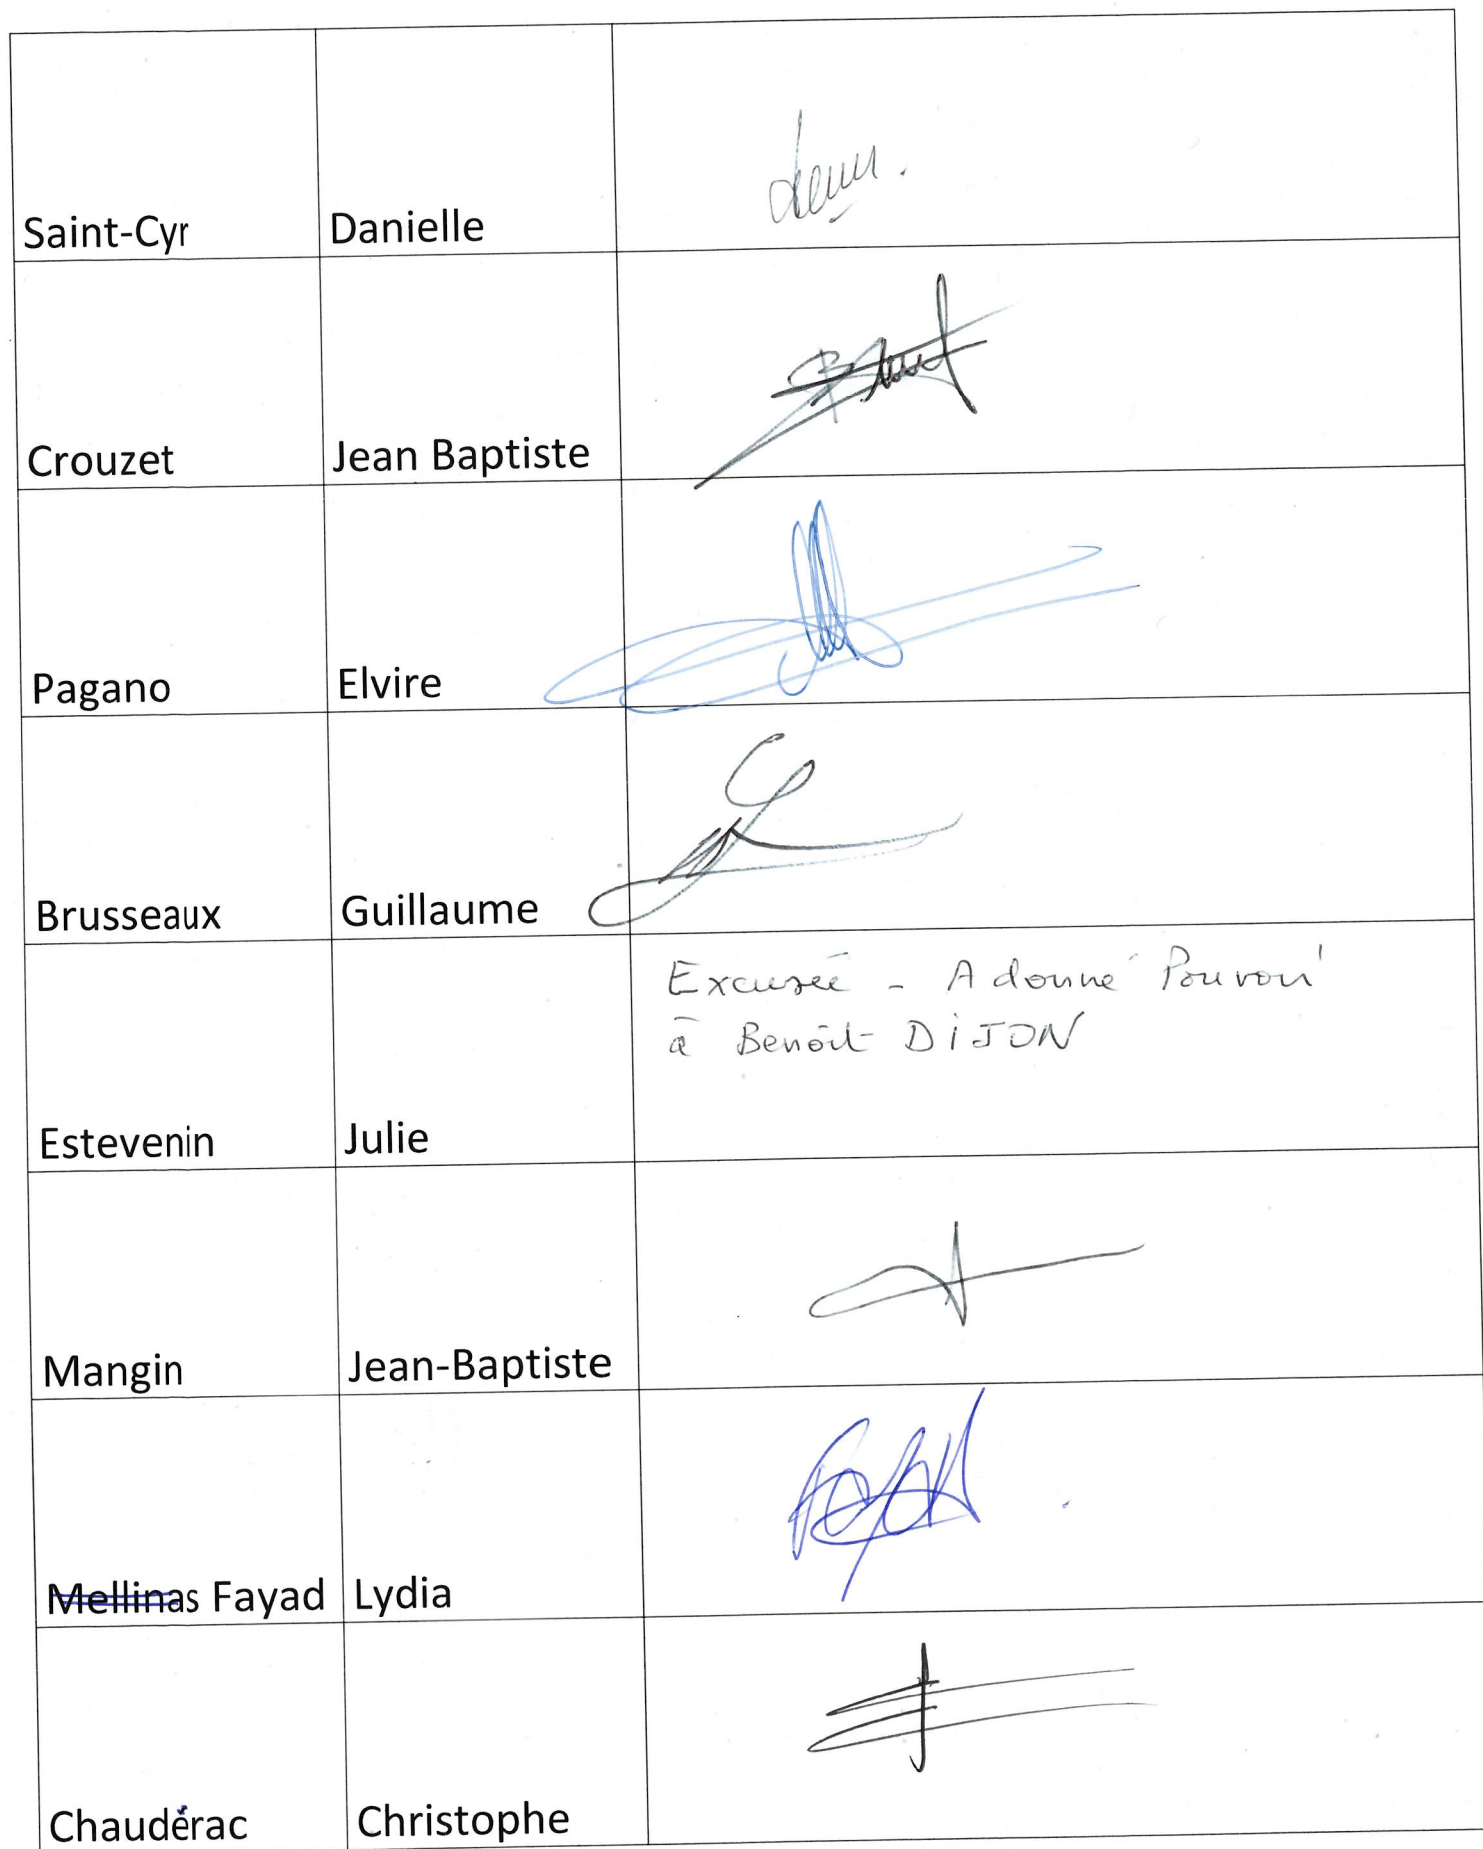 Saint-Cyr Danielle
Crouzet Jean Baptiste
Pagano Elvire
Brusseaux Guillaume
Excusée - A donné Pouvoir
à Benoît DIJON
Estevenin Julie
Mangin Jean-Baptiste
Mellinas Fayad Lydia
Chaudérac Christophe